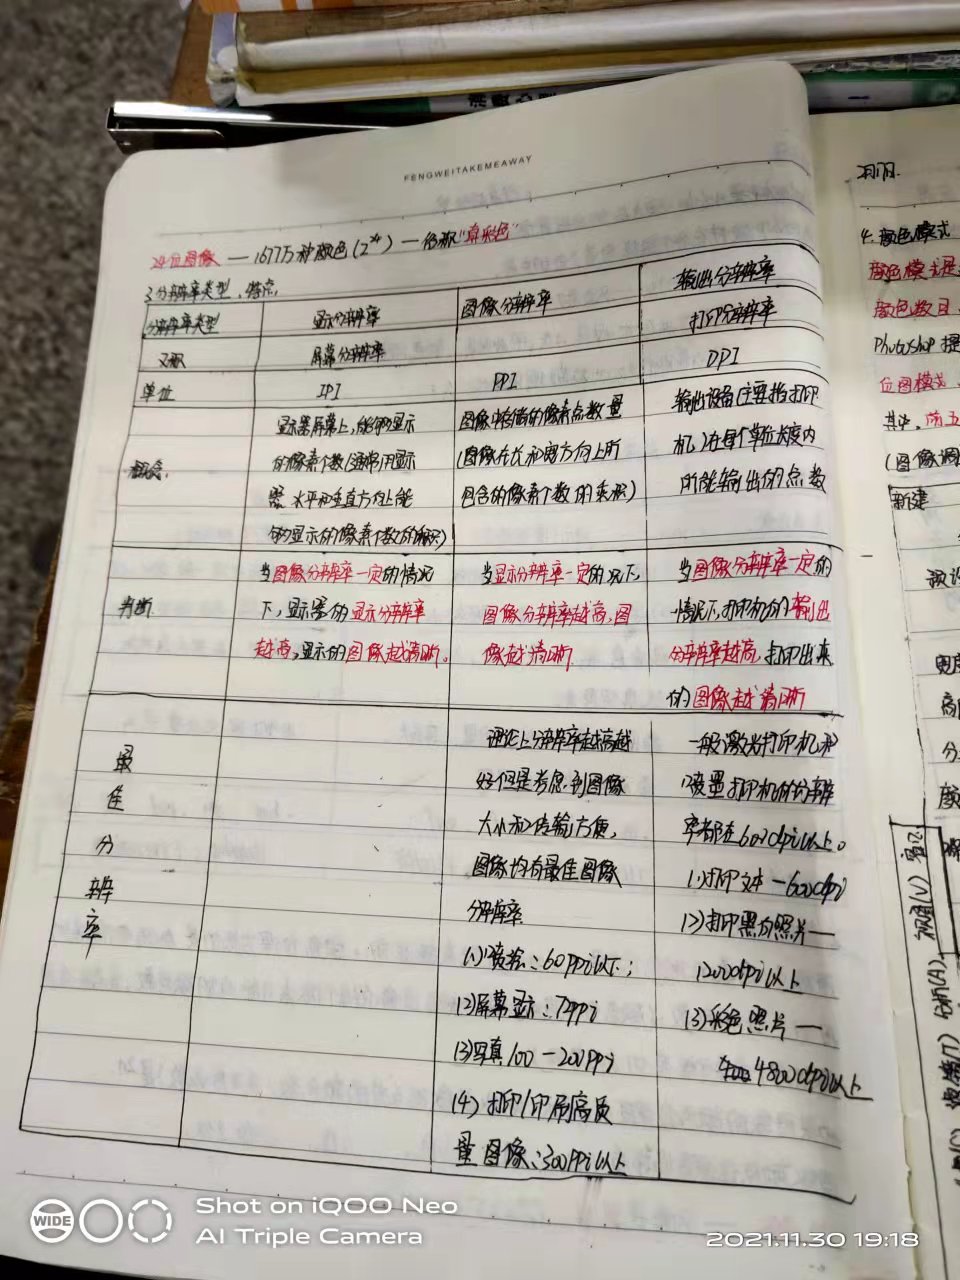 FENGWEITAKEMEAWAY
24位图像 — 1677万种颜色(2²⁴) — 俗称"真彩色"
3.分辨率类型、特点.
分辨率类型 显示分辨率 图像分辨率 输出分辨率
又称 屏幕分辨率 打印分辨率
单位 IPI PPI DPI
概念.
显示器屏幕上,能够显示
的像素个数(通常用显示
器水平和垂直方向上能
够显示的像素个数的乘积)
图像中存储的像素点数量
(图像在长和宽方向上所
包含的像素个数的乘积)
输出设备(主要指打印
机)在每个单位长度内
所能输出的点数
判断
当图像分辨率一定的情况
下,显示器的显示分辨率
越高,显示的图像越清晰。
当显示分辨率一定的况下,
图像分辨率越高,图
像越清晰
当图像分辨率一定的
情况下,打印机的输出
分辨率越高,打印出来
的图像越清晰
最
佳
分
辨
率
理论上分辨率越高越
好但是考虑到图像
大小和传输方便,
图像均有最佳图像
分辨率
(1)喷绘:60ppi以下;
(2)屏幕显示:72ppi
(3)写真100-200ppi
(4)打印/印刷高质
量图像:300ppi以上
一般激光打印机和
喷墨打印机的分辨
率都在600dpi以上。
(1)打印文本-600dpi
(2)打印黑白照片—
1200dpi以上
(3)彩色照片—
4800dpi以上
4.颜色模式
颜色模式是
颜色数目
Photoshop提
位图模式、
其中,前五
(图像调
新建
预设
宽度
高
分
颜
视图(V) 窗口
Shot on iQOO Neo
WIDE
AI Triple Camera
2021.11.30 19:18